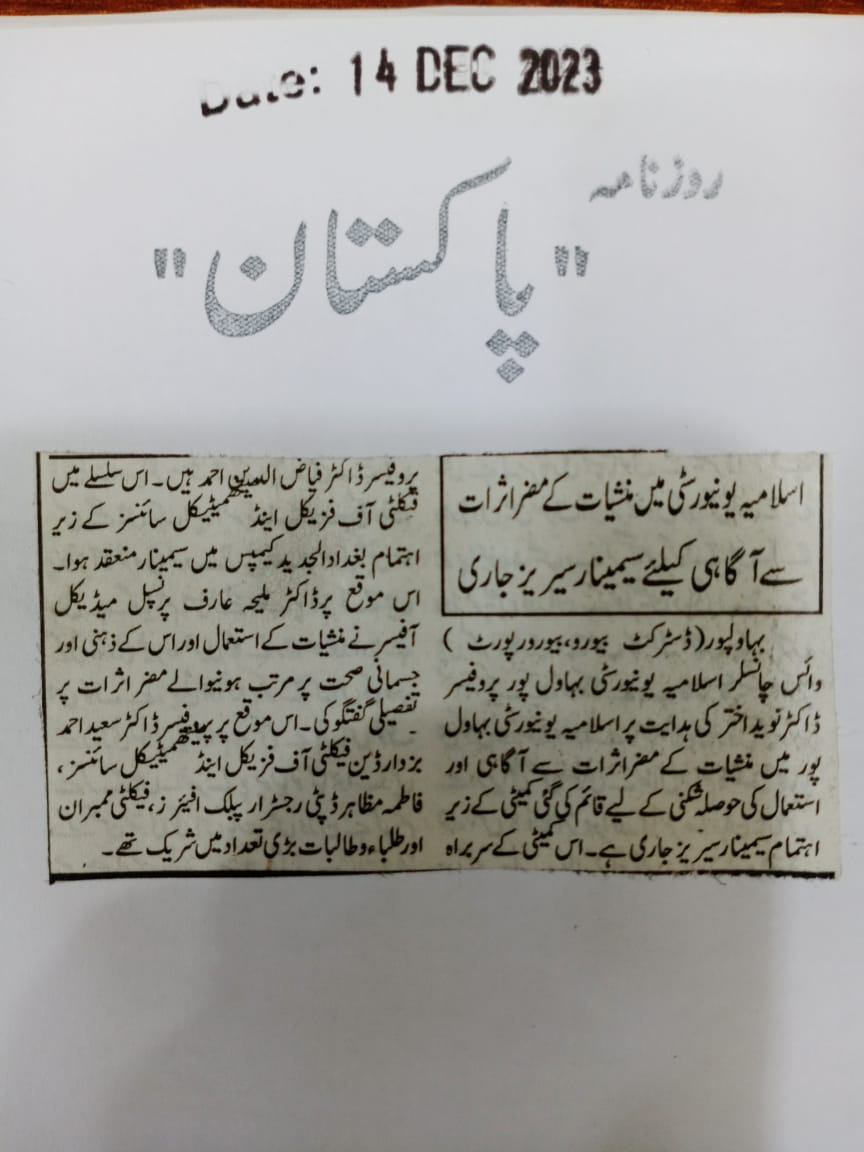 Date: 14 DEC 2023
روزنامہ
"پاکستان"
اسلامیہ یونیورسٹی میں منشیات کے مضر اثرات
سے آگاہی کیلئے سیمینار سیریز جاری
بہاولپور (ڈسٹرکٹ بیورو، بیورو رپورٹ)
وائس چانسلر اسلامیہ یونیورسٹی بہاول پور پروفیسر
ڈاکٹر نوید اختر کی ہدایت پر اسلامیہ یونیورسٹی بہاول
پور میں منشیات کے مضر اثرات سے آگاہی اور
استعمال کی حوصلہ شکنی کے لیے قائم کی گئی کمیٹی کے زیر
اہتمام سیمینار سیریز جاری ہے۔ اس کمیٹی کے سربراہ
پروفیسر ڈاکٹر فیاض الدین احمد ہیں۔ اس سلسلے میں
فیکلٹی آف فزیکل اینڈ میتھمیٹیکل سائنسز کے زیر
اہتمام بغداد الجدید کیمپس میں سیمینار منعقد ہوا۔
اس موقع پر ڈاکٹر ملیحہ عارف پرنسپل میڈیکل
آفیسر نے منشیات کے استعمال اور اس کے ذہنی اور
جسمانی صحت پر مرتب ہونیوالے مضر اثرات پر
تفصیلی گفتگو کی۔ اس موقع پر پروفیسر ڈاکٹر سعید احمد
بزدار ڈین فیکلٹی آف فزیکل اینڈ میتھمیٹیکل سائنسز،
فاطمہ مظاہر ڈپٹی رجسٹرار پبلک افیئرز، فیکلٹی ممبران
اور طلباء و طالبات بڑی تعداد میں شریک تھے۔